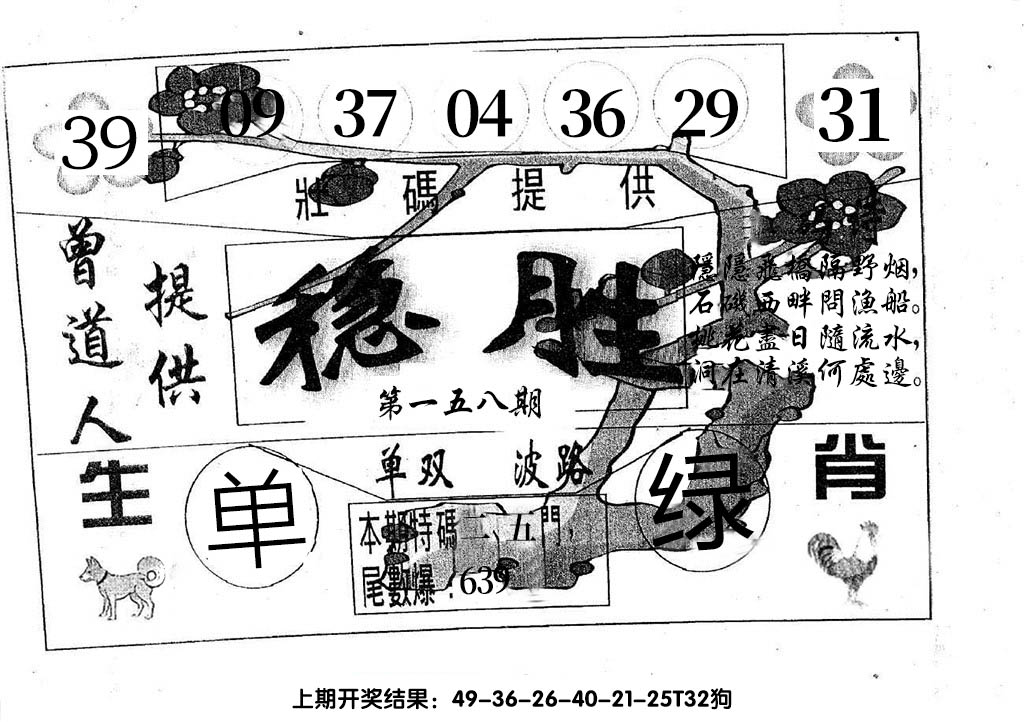 39 09 37 04 36 29 31
壯碼提供
曾道人
提供
穏胜
第一五八期
隱隱飛橋隔野烟，
石磯西畔問漁船。
桃花盡日隨流水，
洞在清溪何處邊。
单双 波路
生肖
单
绿
本期特碼二、五門，
尾數爆：639
上期开奖结果：49-36-26-40-21-25T32狗